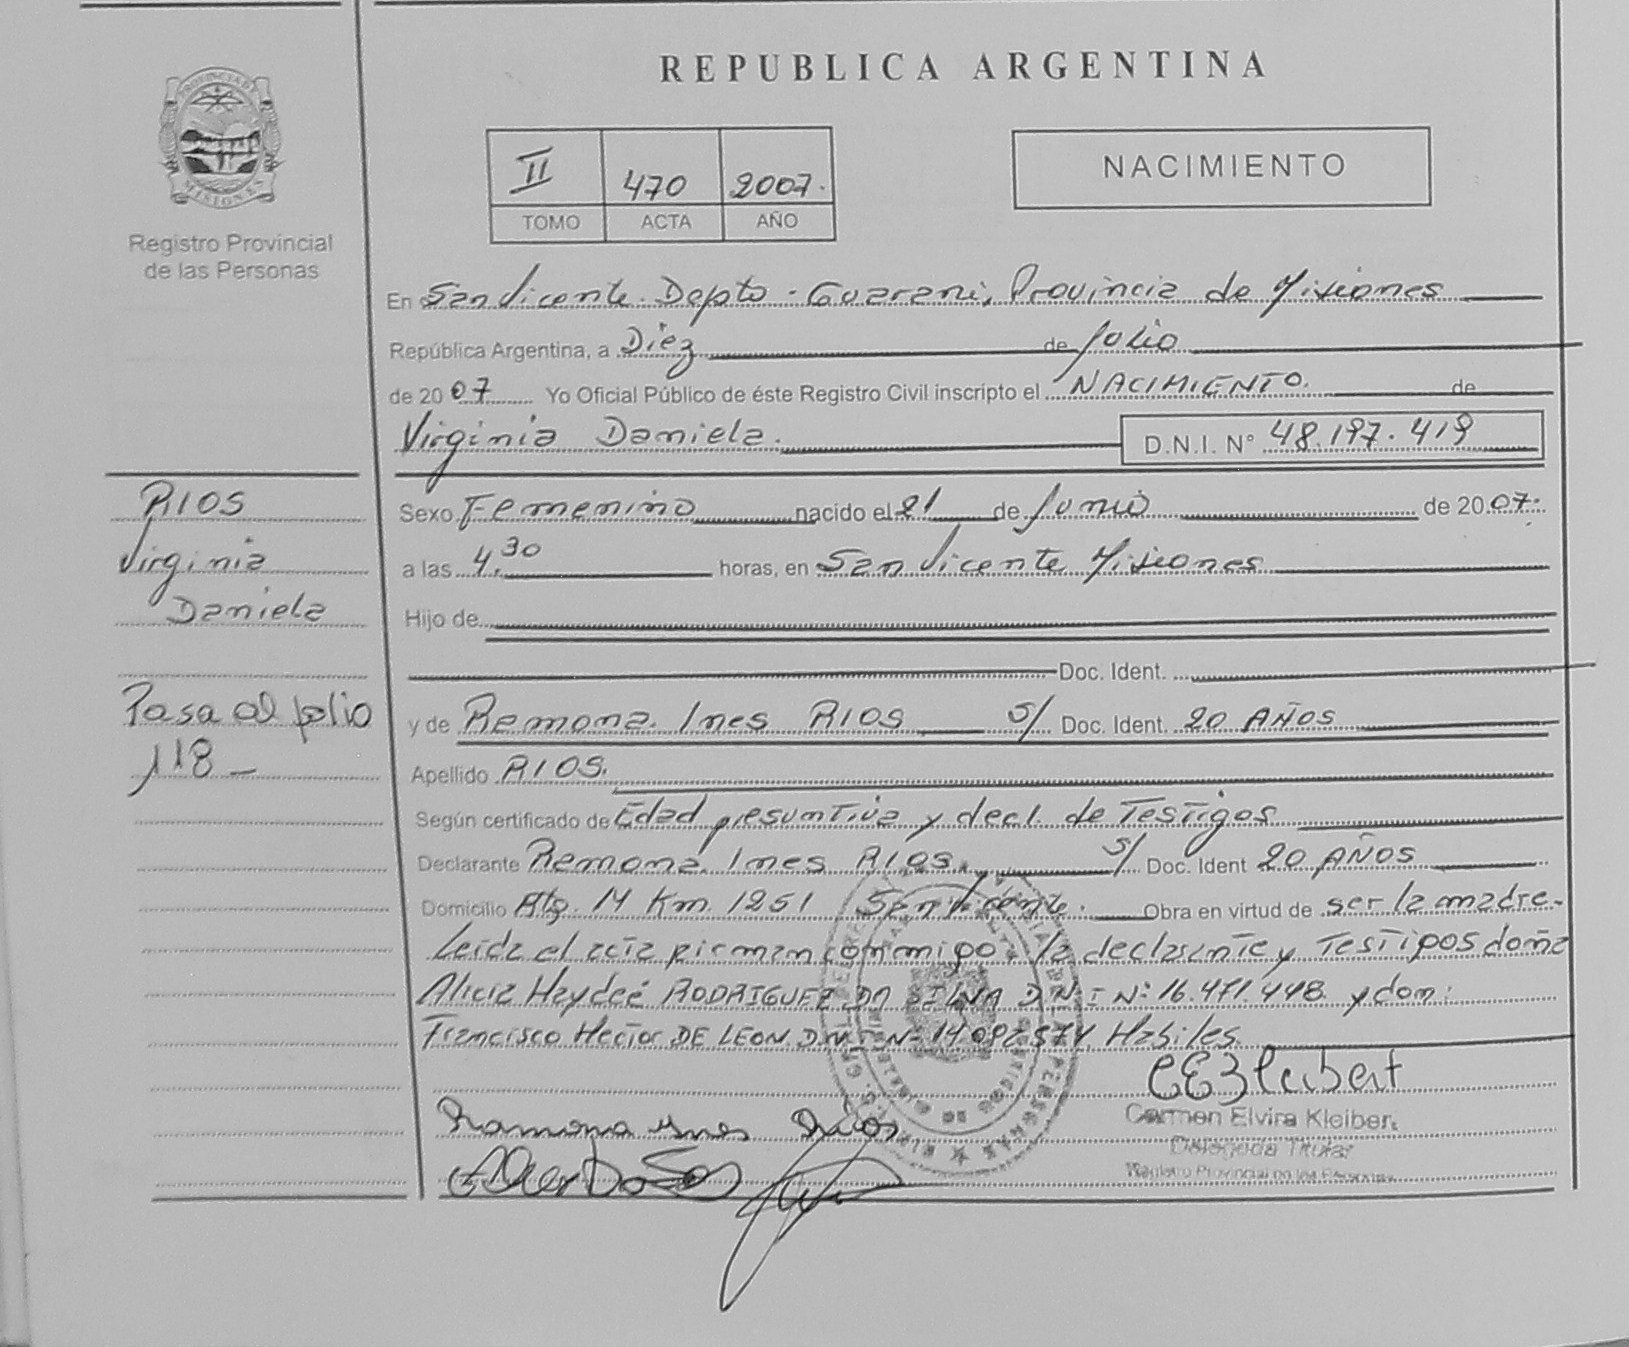 REPUBLICA ARGENTINA
PROVINCIA DE
MISIONES
Registro Provincial
de las Personas
II 470 2007.
TOMO ACTA AÑO
NACIMIENTO
En San Vicente. Depto. Guarani, Provincia de Misiones
República Argentina, a Diez de Julio
de 2007 Yo Oficial Público de éste Registro Civil inscripto el NACIMIENTO. de
Virginia Daniela. D.N.I. N° 48.197.419
RIOS
Virginia
Daniela
Pasa al folio
118 -
Sexo Femenino nacido el 21 de Junio de 2007.
a las 4.30 horas, en San Vicente Misiones
Hijo de
Doc. Ident.
y de Ramona. Ines RIOS S/ Doc. Ident. 20 AÑOS
Apellido RIOS.
Según certificado de Edad presuntiva y decl. de Testigos
Declarante Ramona. Ines RIOS. S/ Doc. Ident 20 AÑOS
Domicilio Rta. 14 Km. 1251 San Vicente. Obra en virtud de ser la madre.
Leida el acta firman conmigo: la declarante y Testigos doña
Alicia Haydeé RODRIGUEZ DA SILVA D.N.I N° 16.471.448 y don:
Francisco Hector DE LEON D.N.I N° Habiles.
Ramona Ines Rios
Carmen Elvira Kleibert
Delegada Titular
Registro Provincial de las Personas